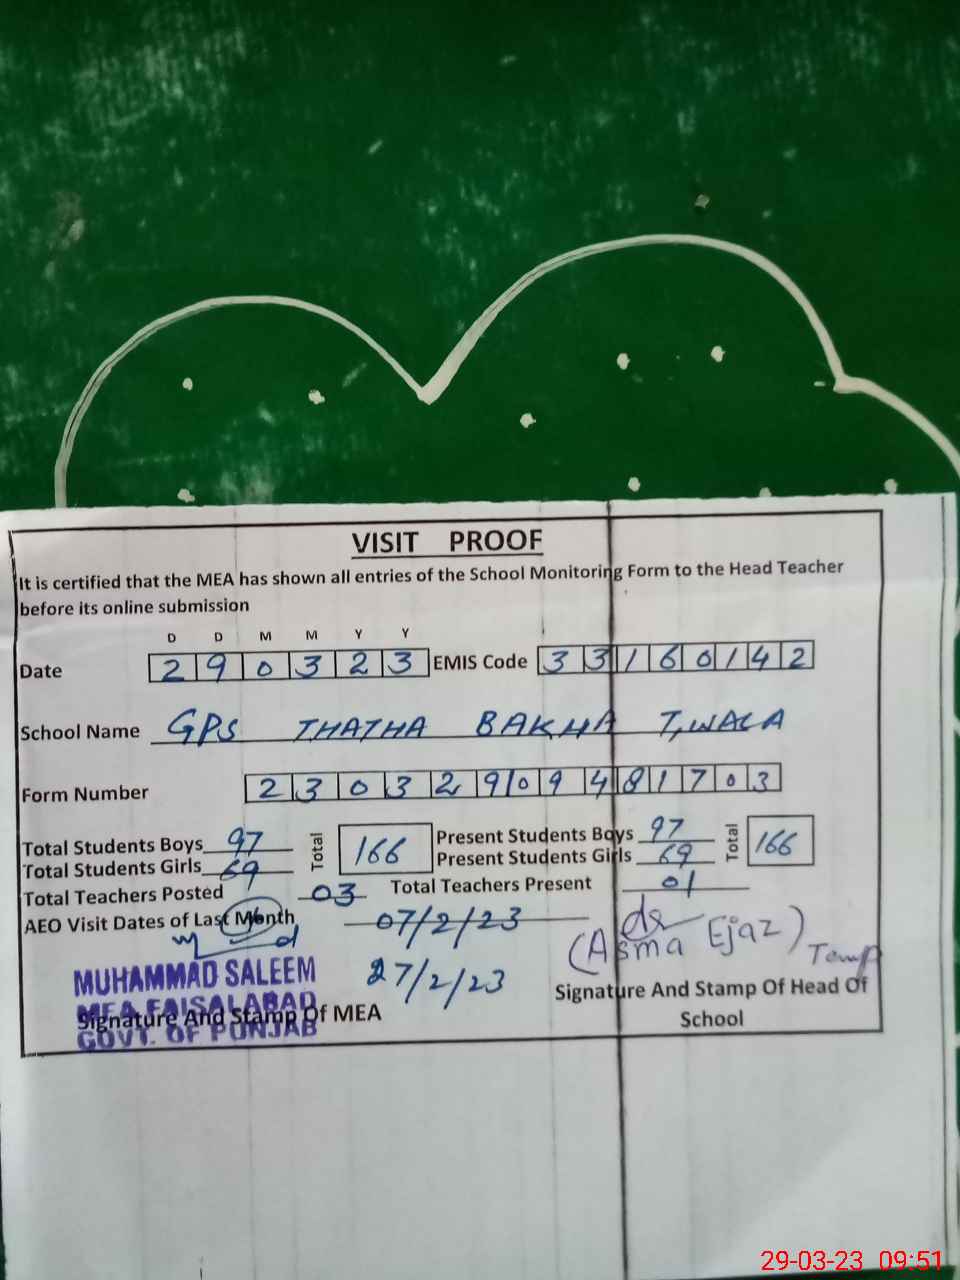 VISIT PROOF
It is certified that the MEA has shown all entries of the School Monitoring Form to the Head Teacher
before its online submission
D D M M Y Y
Date 2 9 0 3 2 3 EMIS Code 3 3 1 6 0 1 4 2
School Name GPS THATHA BAKHA T,WALA
Form Number 2 3 0 3 2 9 0 9 4 8 1 7 0 3
Total Students Boys 97 Total 166 Present Students Boys 97 Total 166
Total Students Girls 69 Present Students Girls 69
Total Teachers Posted 03 Total Teachers Present 01
AEO Visit Dates of Last Month 07/2/23
27/2/23
(Asma Ejaz) Temp
MUHAMMAD SALEEM
MEA FAISALABAD
GOVT. OF PUNJAB
Signature And Stamp Of MEA
Signature And Stamp Of Head Of
School
29-03-23 09:51